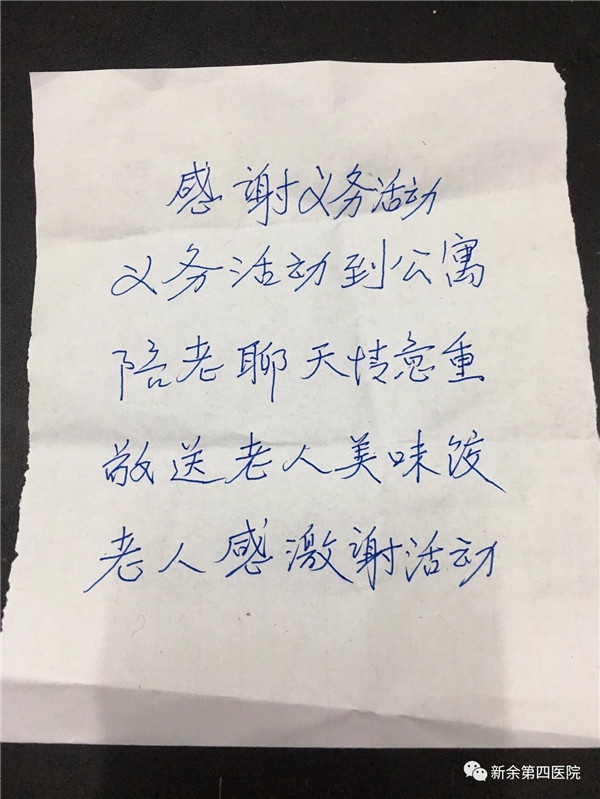 感谢义务活动
义务活动到公寓
陪老聊天情意重
敬送老人美味饺
老人感激谢活动
新余第四医院